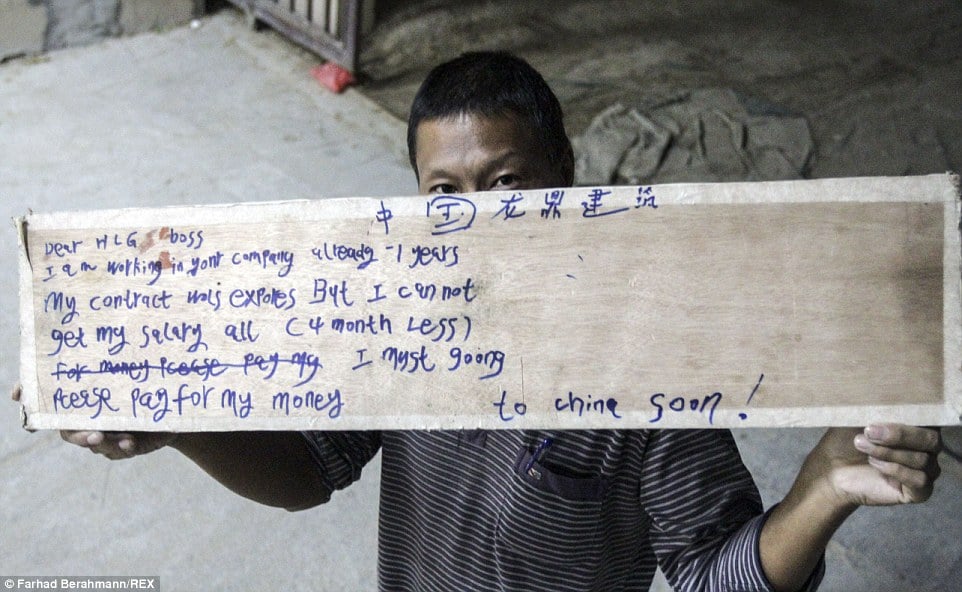 中国龙鼎建筑
Dear HLG boss
I am working in your company already -1 years
My contract wols expores But I can not
get my salary all (4 month Less)
For money Pcease pay my I myst goong
Pcerse pay for my money to china soon!
© Farhad Berahmann/REX